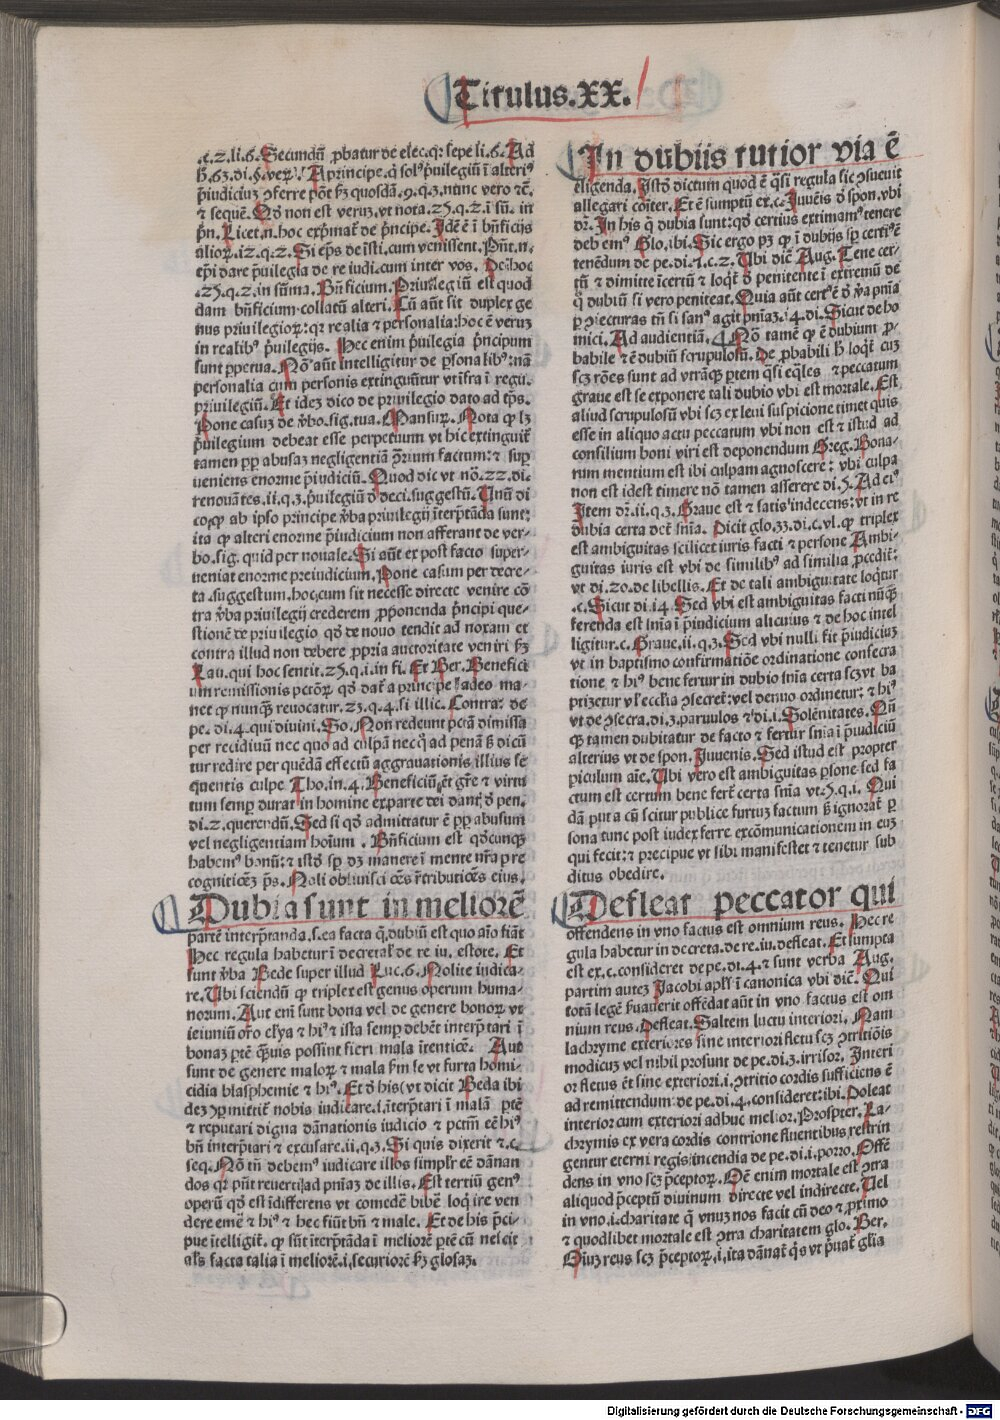 Titulus.XX.
.c.2.li.6. Secundū ꝓbatur de elec.qꝛ sepe li.6. Ad
Apꝛincipe.q̇ sol⁹ p̄uilegiū ī alteri⁹
p̄iudiciuꝫ ꝯferre pōt
.9.q.3.nunc vero ⁊c̄.
⁊ sequē. Qđ non est veruꝫ.vt nota.25.q.2.ī sū. in
p̄n. Licet.n.hoc expꝛimat̄ de p̄ncipe. Idē ē ī bn̄ficijs
alioꝝ.12.q.2. Si ep̄s de īsti.cum venissent. Pn̄t.n.
ep̄i dare p̄uilegia de re iudi.cum inter vos. De hoc
.25.q.2.in sūma. Bn̄ficium. Pꝛiuilegiū est quod
dam bn̄ficium collatū alteri. Cū aūt sit duplex ge
nus pꝛiuilegioꝝ: qꝛ realia ⁊ personalia: hoc ē veruꝫ
in realib⁹ p̄uilegijs. Hec enim p̄uilegia p̄ncipum
sunt ꝑpetua. Nō aūt intelligitur de ꝑsonalib⁹: nā
personalia cum personis extingunt̄ur vt īfra ī regu.
pꝛiuilegiū. Et ideꝫ dico de pꝛiuilegio dato ad tp̄s.
Pone casuꝫ de v̄bo.sig.tua. Mansur. Nota ꝙ lꝫ
p̄uilegium debeat esse perpetuum vt hic extinguit̄
tamen ꝓp abusaꝫ negligentiā pꝛium factum: ⁊ suꝑ
ueniens enorme p̄iudiciū. Quod dic vt nō.22.di.
renouātes.ii.q.3.p̄uilegiū ⁊ deci.suggestū. Unū di
co ꝙ ab ipso pꝛincipe v̄ba pꝛiuilegij īterpꝛtāda sunt:
ita ꝙ alteri enorme p̄iudicium non afferant de ver
bo.sig.quid per nouale. Si aūt ex post facto super-
neniat enorme pꝛeiudicium. Pone casum per decre-
ta.suggestum.hoc cum sit necesse directe venire cō
tra v̄ba pꝛiuilegij crederem ꝓponenda p̄ncipi que-
stionē de pꝛiuilegio qđ de nouo tendit ad noxam et
contra illud non debere ꝓpꝛia auctoꝛitate veniri
Lau.qui hoc sentit.25.q.i.in fi. Et Ber. Benefici
um remissionis pctōꝝ qđ dat̄ a pꝛincipe adeo ma-
net ꝙ nunꝙ̄ reuocatur.23.q.4.si illic. Contra: de
pe.di.4.qui diuini. So. Non redeunt pctā dimissa
per recidiuū nec quo ad culpā necꝙ ad penā ß dicū
tur redire per quēdā effectū aggrauationis illius se
quentis culpe. Tho.in.4. Beneficiū ēt gr̄e ⁊ virtu
tum semꝑ durat in homine ex parte dei dant̄ ꝺ pen.
di.2.querendū. Sed si qđ admittatur ē ꝓp abusum
vel negligentiam hoīum . Bn̄ficium est qđcunꝙ̄
habem⁹ bonū: ⁊ istđ sꝑ dꝫ manere ī mente nr̄a pꝛe
cogniticēꝫ p̄s. Noli obliuisci oēs r̄tributiōes eius.
Dubia sunt in melioꝛē
partē interpꝛtanda.s.ea facta q̄ dubiū est quo aīo fiāt
Hec regula habetur ī decretał de re iu. estote. Et
sunt v̄ba Bede super illud Luc.6. Nolite iudica-
re. Ubi sciendū ꝙ triplex est genus operum huma-
norum. Aut eni sunt bona vel de genere bonoꝝ vt
ieiuniū oꝛo elr̄ya ⁊ hi⁹ ⁊ ista semꝑ debēt interpꝛtari ī
bonaꝫ ptē ꝗuis possint fieri mala ītenticē. Aut
sunt de genere maloꝝ ⁊ mala ßm se vt furta homi-
cidia blasphemie ⁊ hi⁹. Et ꝺ his (vt dicit Beda ibi
deꝫ ꝑmittit̄ nobis iudicare.i.īterpꝛtari ī malā ptē
⁊ reputari digna dānationis iudicio ⁊ pctm̄ eē hi⁹
bn̄ interpꝛtari ⁊ excusare.ii.q.3. Si quis dixerit ⁊.c.
seq. Nō tn̄ debem⁹ iudicare illos simplr̄ eē dānan
dos qꝛ pn̄t reuerti ad pn̄iaꝫ de illis. Est tertiū gen⁹
operū qđ est īdifferens vt comedē bibē loq̄ ire ven
dere emē ⁊ hi⁹ ⁊ hec fiūt bn̄ ⁊ male. Et de his p̄ci-
pue ītelligit̄ ꝙ sūt īterpꝛtāda ī melioꝛē ptē cū nescit̄
als facta talia ī melioꝛē.i.securioꝛē ßꝫ glosaꝫ.
In dubijs tutioꝛ via ē
eligenda. Istđ dictum quod ē q̄si regula sic ꝯsueuit
allegari cōiter. Et ē sumptū ex.c. Iuuēis ꝺ spon.vbi
dꝛ. In his q̄ dubia sunt: qđ certius extimam⁹ tenere
deb em⁹. Glo.ibi. Sic ergo pꝫ ꝙ ī dubijs sꝑ certi⁹ ē
tenēdum de pe.di.7.c.2. Ubi dic̄ Aug. Tene cer-
tū ⁊ dimitte īcertū ⁊ loqt̄ ꝺ penitente ī extremū de
q̇ dubiū si vero peniteat. Quia aūt cert⁹ ē ꝺ v̄a pn̄ia
ꝑ ꝯiecturas tn̄ si san⁹ agit pn̄iaꝫ.14.di. Sicut de ho
mici. Ad audientiā. Nō tamē ꝙ ē dubium pꝛo-
babile ⁊ ē dubiū scrupulosū. De ꝓbabili h̄ loqt̄ cuꝫ
scꝫ rōes sunt ad vtrāꝙ̄ ꝑtem q̄si eq̄les ⁊ peccatum
graue est se exponere tali dubio vbi est moꝛtale. Est
aliud scrupulosū vbi scꝫ ex leui suspicione timet quis
esse in aliquo actu peccatum vbi non est ⁊ istud ad
consilium boni viri est deponendum Greg. Bona-
rum mentium est ibi culpam agnoscere: vbi culpa
non est idest timere nō tamen asserere di.5. Ad ei⁹
Item dꝛ.ii.q.3. Graue est ⁊ satis indecens: vt in re
dubia certa det̄ sn̄ia. Dicit glo.33.di.c.vl.ꝙ triplex
est ambiguitas scilicet iuris facti ⁊ persone Ambi-
guitas iuris est vbi de similib⁹ ad similia ꝓcedit̄:
vt di.20.de libellis. Et de tali ambiguitate loq̄tur
.c. Sicut di.14. Sed vbi est ambiguitas facti nūꝙ̄
ferenda est sn̄ia ī p̄iudicium alicuius ⁊ de hoc intel
ligitur.c. Graue.ii.q.3. Sed vbi nulli fit p̄iudiciuꝫ
vt in baptismo confirmatiōe oꝛdinatione consecra
tione ⁊ hi⁹ bene fertur in dubio sn̄ia certa scꝫ vt ba
pꝛizetur vł ecclīa ꝯsecret̄: vel denuo oꝛdinetur: ⁊ hi⁹
vt de ꝯsecra.di.3.paruulos ⁊ di.i. Solēnitates. Nū
ꝙ̄ tamen dubitatur de facto ⁊ fertur sn̄ia ī p̄iudiciū
alterius vt de spon. Iuuenis. Sed istud est pꝛopter
periculum aīe. Ubi vero est ambiguitas ꝑsone sed fa
ctum est certum bene fert̄ certa sn̄ia vt.5.q.i. Qui
dā puta cū scitur publice furtuꝫ factum ß ignoꝛat̄ ꝑ
sona tunc post iudex ferre excōmunicationem in euꝫ
qui fecit: ⁊ pꝛecipue vt sibi manifestet ⁊ tenetur sub
ditus obedire.
Defleat peccatoꝛ qui
offendens in vno factus est omnium reus. Hec re
gula habetur in decreta.de re.iu.defleat. Et sumpta
est ex.c.consideret de pe.di.4.⁊ sunt verba Aug.
partim auteꝫ Jacobi apl̄i ī canonica vbi dic̄. Qui
totā legē ß̄uauerit offēdat aūt in vno factus est om
nium reus. Defleat. Saltem luctu interioꝛi. Nam
lachryme exterioꝛes sine interioꝛi fletu scꝫ ꝯtritiōis
modicuꝫ vel nihil pꝛosunt de pe.di.3.irrisoꝛ. Interi
oꝛ fletus ēt sine exterioꝛi.i.ꝯtritio coꝛdis sufficiens ē
ad remittendum de pe.di.4.consideret: ibi. Doleat
interioꝛ cum exterioꝛi adhuc melioꝛ. Pꝛosper. La-
chrymis ex vera coꝛdis contrione fluentibus restrin
gentur eterni regis incendia de pe.di.i.poꝛro. Offē
dens in vno scꝫ p̄ceptoꝝ. Oē enim moꝛtale est ꝯtra
aliquod p̄ceptū diuinum directe vel indirecte. Uel
in vno.i.charitate q̄ vnuꝫ nos facit cū deo ⁊ ꝓximo
⁊ quodlibet moꝛtale est ꝯtra charitatem glo. Ber.
Oīuꝫ reus scꝫ p̄ceptoꝝ.i.ita dānat̄ q̇s vt p̄uat̄ glīa
Digitalisierung gefördert durch die Deutsche Forschungsgemeinschaft - DFG